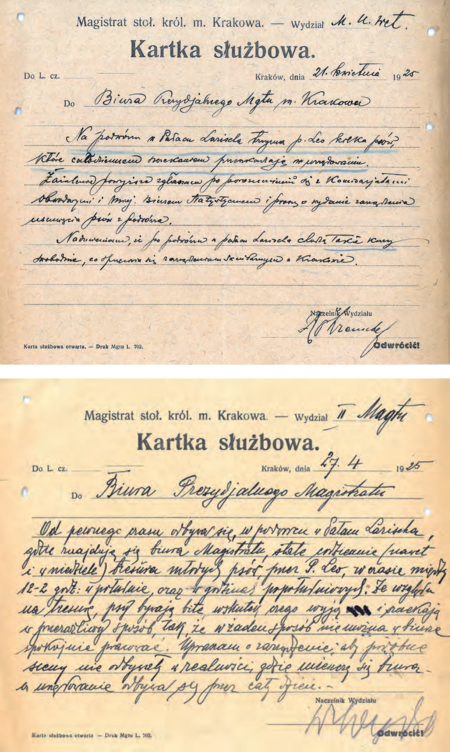 Magistrat stoł. król. m. Krakowa. — Wydział M. U. Wet.
Kartka służbowa.
Do L. cz.
Kraków, dnia 21. kwietnia 1925
Do Biura Prezydjalnego Mgtu m. Krakowa
Na podwórzu w Pałacu Larischa trzyma p. Leo kilka psów,
które całodziennem szczekaniem przeszkadzają w urzędowaniu.
powyższe zgłaszam po porozumieniu się z Komisarjatami
Obwodowymi i Miej. Biurem Statystycznem i proszę o wydanie zarządzenia
usunięcia psów z podwórza.
Nadmieniam, że po podwórzu w pałacu Larischa chodzą także kury
swobodnie, co sprzeciwia się zarządzeniom sanitarnym w Krakowie.
Naczelnik Wydziału
Karta służbowa otwarta. — Druk Mgtu L. 702.
Odwrócić!
Magistrat stoł. król. m. Krakowa. — Wydział II Magtu
Kartka służbowa.
Do L. cz.
Kraków, dnia 27. 4 1925
Do Biura Prezydjalnego Magistratu
Od pewnego czasu odbywa się w podwórzu w Pałacu Larischa,
gdzie znajdują się biura Magistratu, stale codziennie (nawet
i w niedziele) tresura młodych psów przez P. Leo, w czasie między
12-2 godz. w południe, oraz w godzinach popołudniowych. Ze względu
na tresurę, psy bywają bite wskutek czego wyją i szczekają
w przeraźliwy sposób tak, że w żaden sposób nie można w biurze
spokojnie pracować. Upraszam o zarządzenie, aby podobne
sceny nie odbywały się w realności, gdzie mieszczą się biura
a urzędowanie odbywa się przez cały dzień. —
Naczelnik Wydziału
Karta służbowa otwarta — Druk Mgtu L. 702.
Odwrócić!